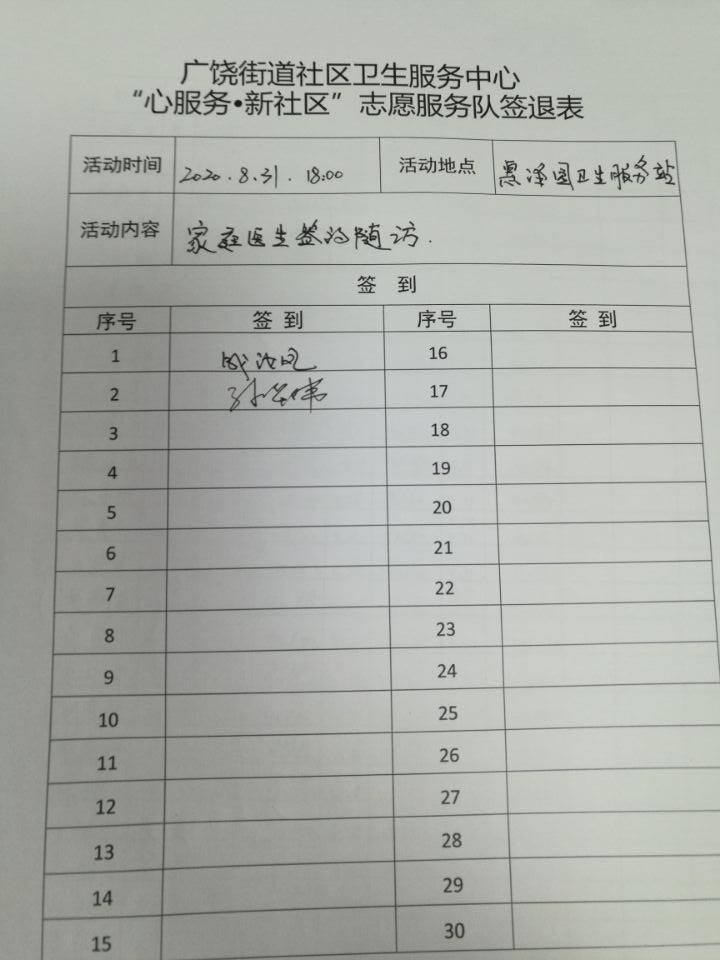 广饶街道社区卫生服务中心
“心服务•新社区”志愿服务队签退表
活动时间 2020.8.31. 18:00 活动地点 黑泽园卫生服务站
活动内容 家庭医生签约随访.
签 到
序号 签 到 序号 签 到
1 16
2 17
3 18
4 19
5 20
6 21
7 22
8 23
9 24
10 25
11 26
12 27
13 28
14 29
15 30